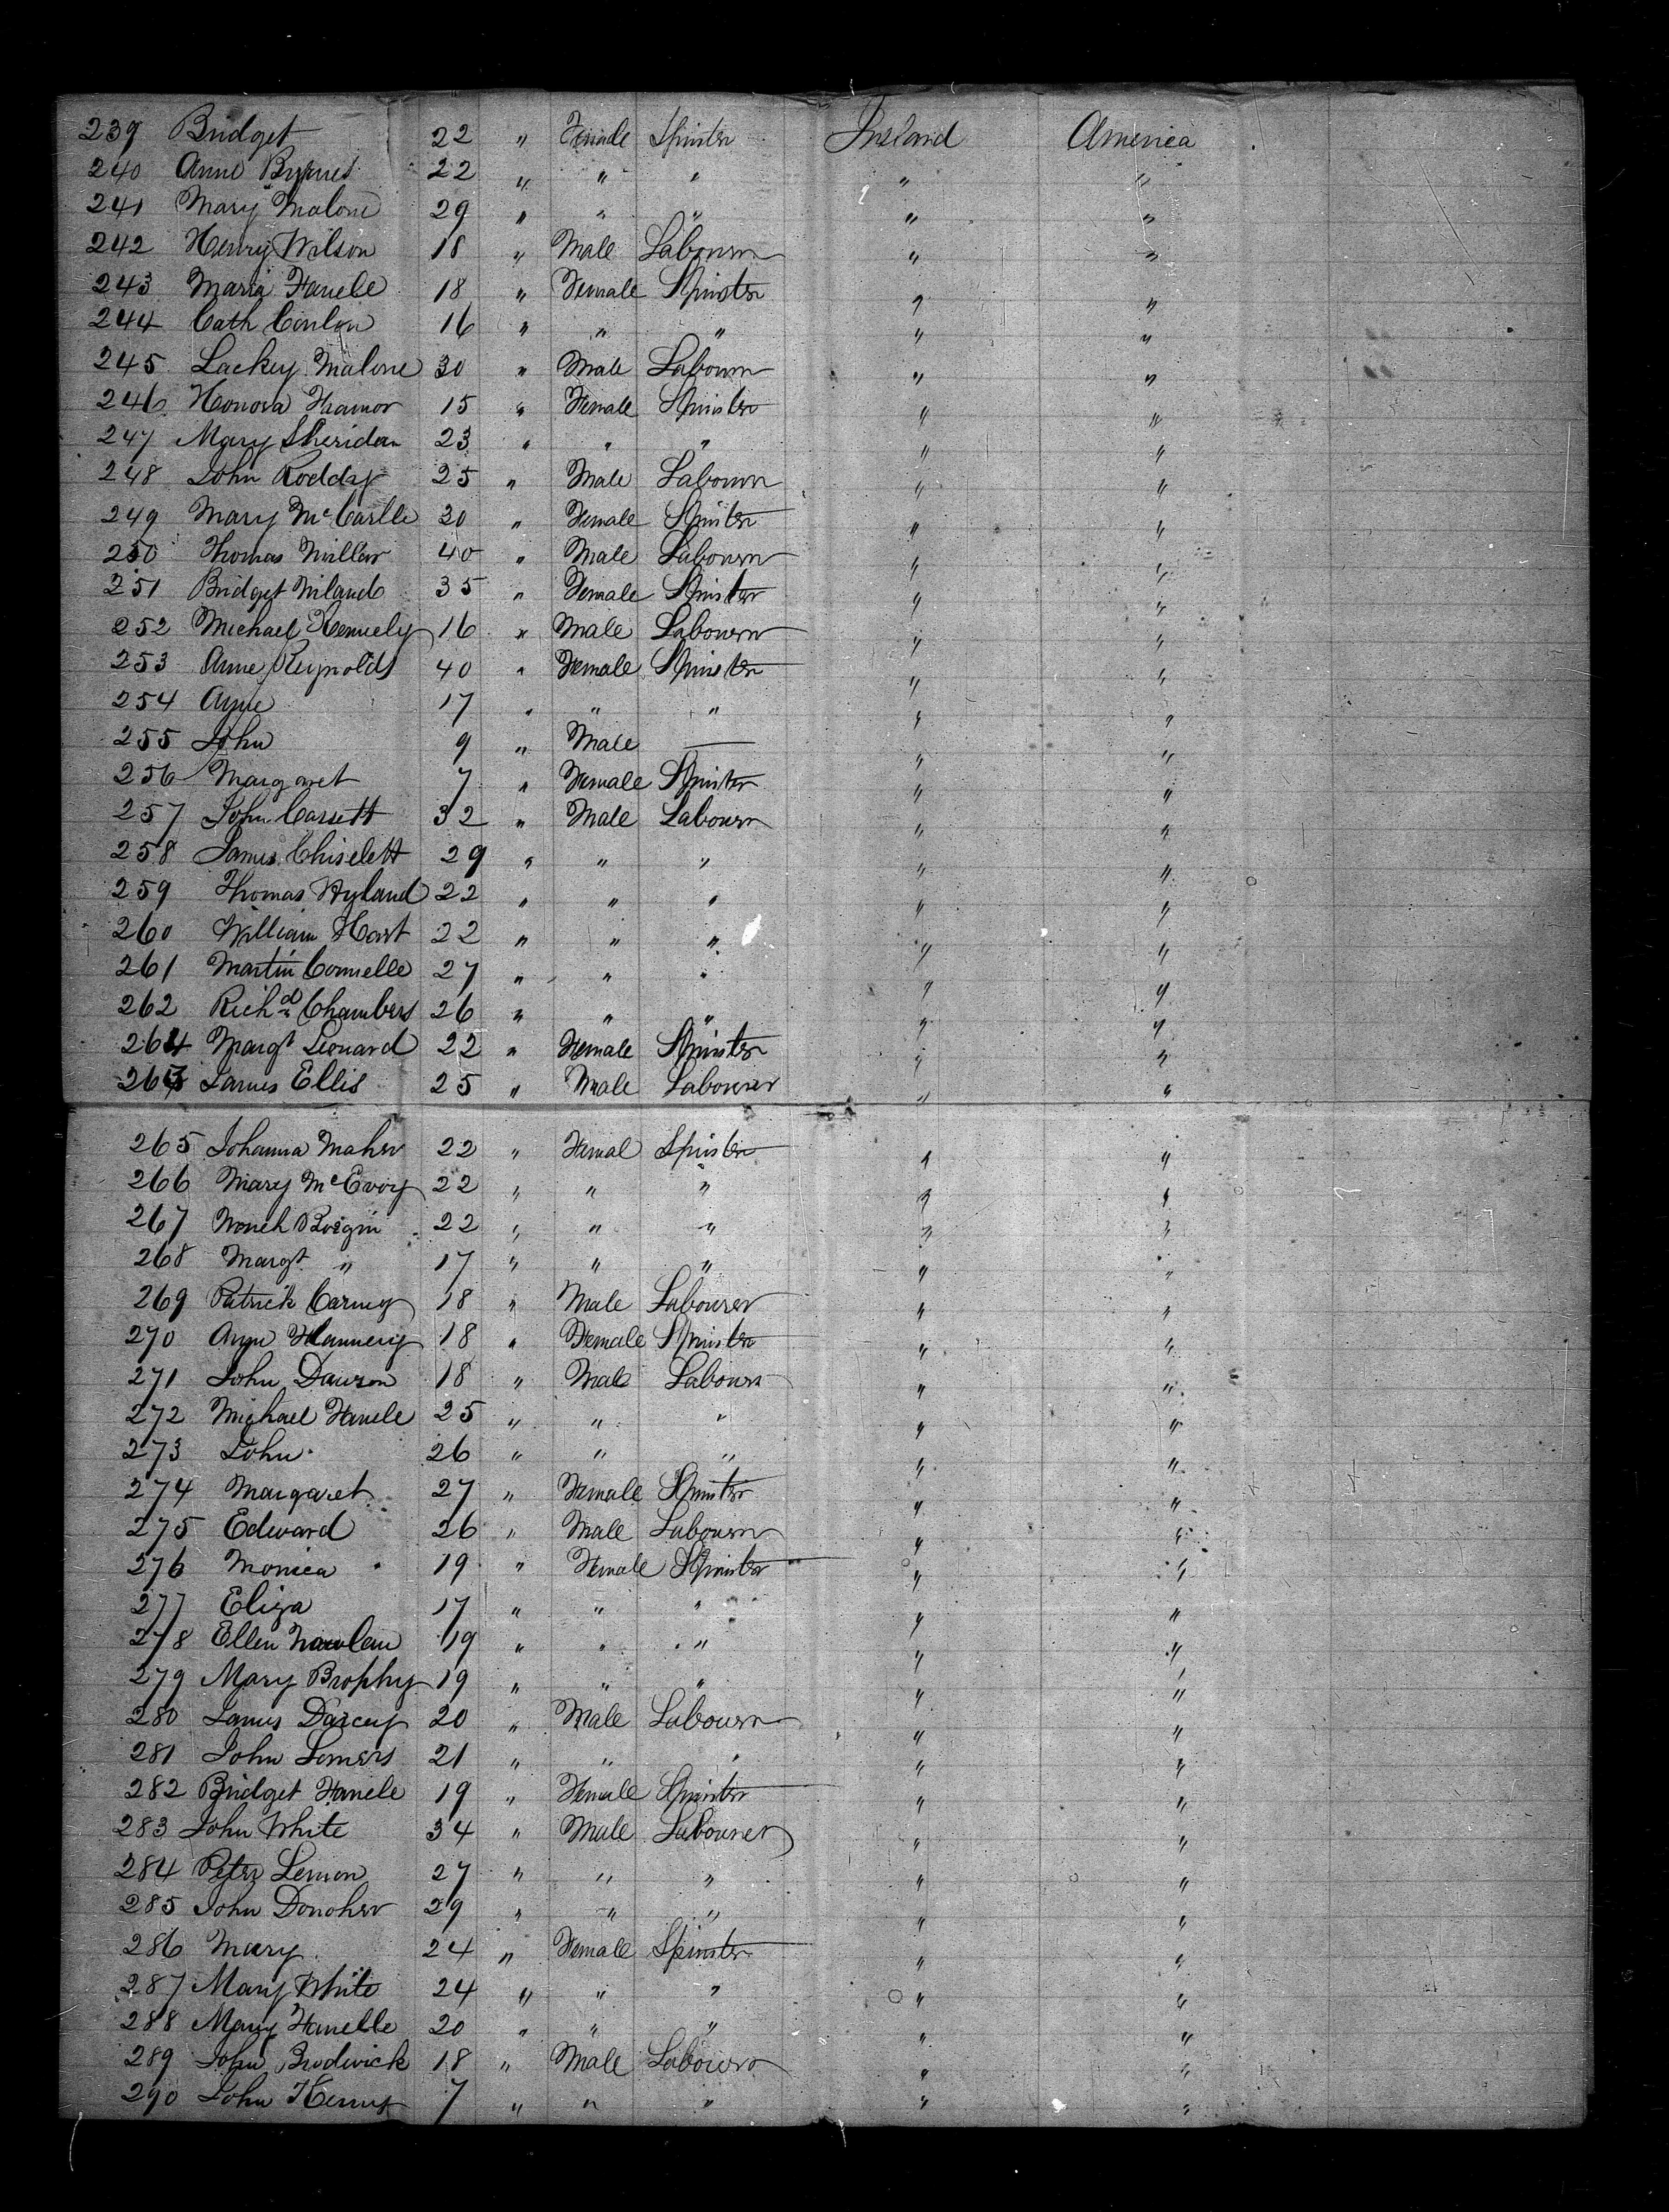 239 Bridget 22 " Female Spinster Ireland America
240 Anne Byrnes 22 " " " " "
241 Mary Malone 29 " " " " "
242 Henry Wilson 18 " Male Labourer " "
243 Maria Farrele 18 " Female Spinster " "
244 Cath Conlon 16 " " " " "
245 Lackey Malone 30 " Male Labourer " "
246 Honora 15 " Female Spinster " "
247 Mary Sheridan 23 " " " " "
248 John Roddy 25 " Male Labourer " "
249 Mary McCarlle 20 " Female Spinster " "
250 Thomas Miller 40 " Male Labourer " "
251 Bridget Niland 35 " Female Spinster " "
252 Michael 16 " Male Labourer " "
253 Anne Reynolds 40 " Female Spinster " "
254 Anne 17 " " " " "
255 John 9 " Male — " "
256 Margaret 7 " Female Spinster " "
257 John Cassett 32 " Male Labourer " "
258 James Chiselett 29 " " " " "
259 Thomas Hyland 22 " " " " "
260 William Hart 22 " " " " "
261 Martin Connelle 27 " " " " "
262 Richd Chambers 26 " " " " "
264 Margt Leonard 22 " Female Spinster " "
263 James Ellis 25 " Male Labourer " "
265 Johanna Maher 22 " Femal Spinster " "
266 Mary McEvoy 22 " " " " "
267 22 " " " " "
268 Margt " 17 " " " " "
269 Patrick Carney 18 " Male Labourer " "
270 Anne Flannery 18 " Female Spinster " "
271 John Dawson 18 " Male Labourer " "
272 Michael Farrele 25 " " " " "
273 John 26 " " " " "
274 Margaret 27 " Female Spinster " "
275 Edward 26 " Male Labourer " "
276 Monica 19 " Female Spinster " "
277 Eliza 17 " " " " "
278 Ellen Nowlan 19 " " " " "
279 Mary Brophy 19 " " " " "
280 James Darcey 20 " Male Labourer " "
281 John Somers 21 " " " " "
282 Bridget Farrele 19 " Female Spinster " "
283 John White 34 " Male Labourer " "
284 Peter Lennon 27 " " " " "
285 John Donoher 29 " " " " "
286 Mary 24 " Female Spinster " "
287 Mary White 24 " " " " "
288 Mary Farrelle 20 " " " " "
289 John Brodwick 18 " Male Labourer " "
290 John 7 " " " " "